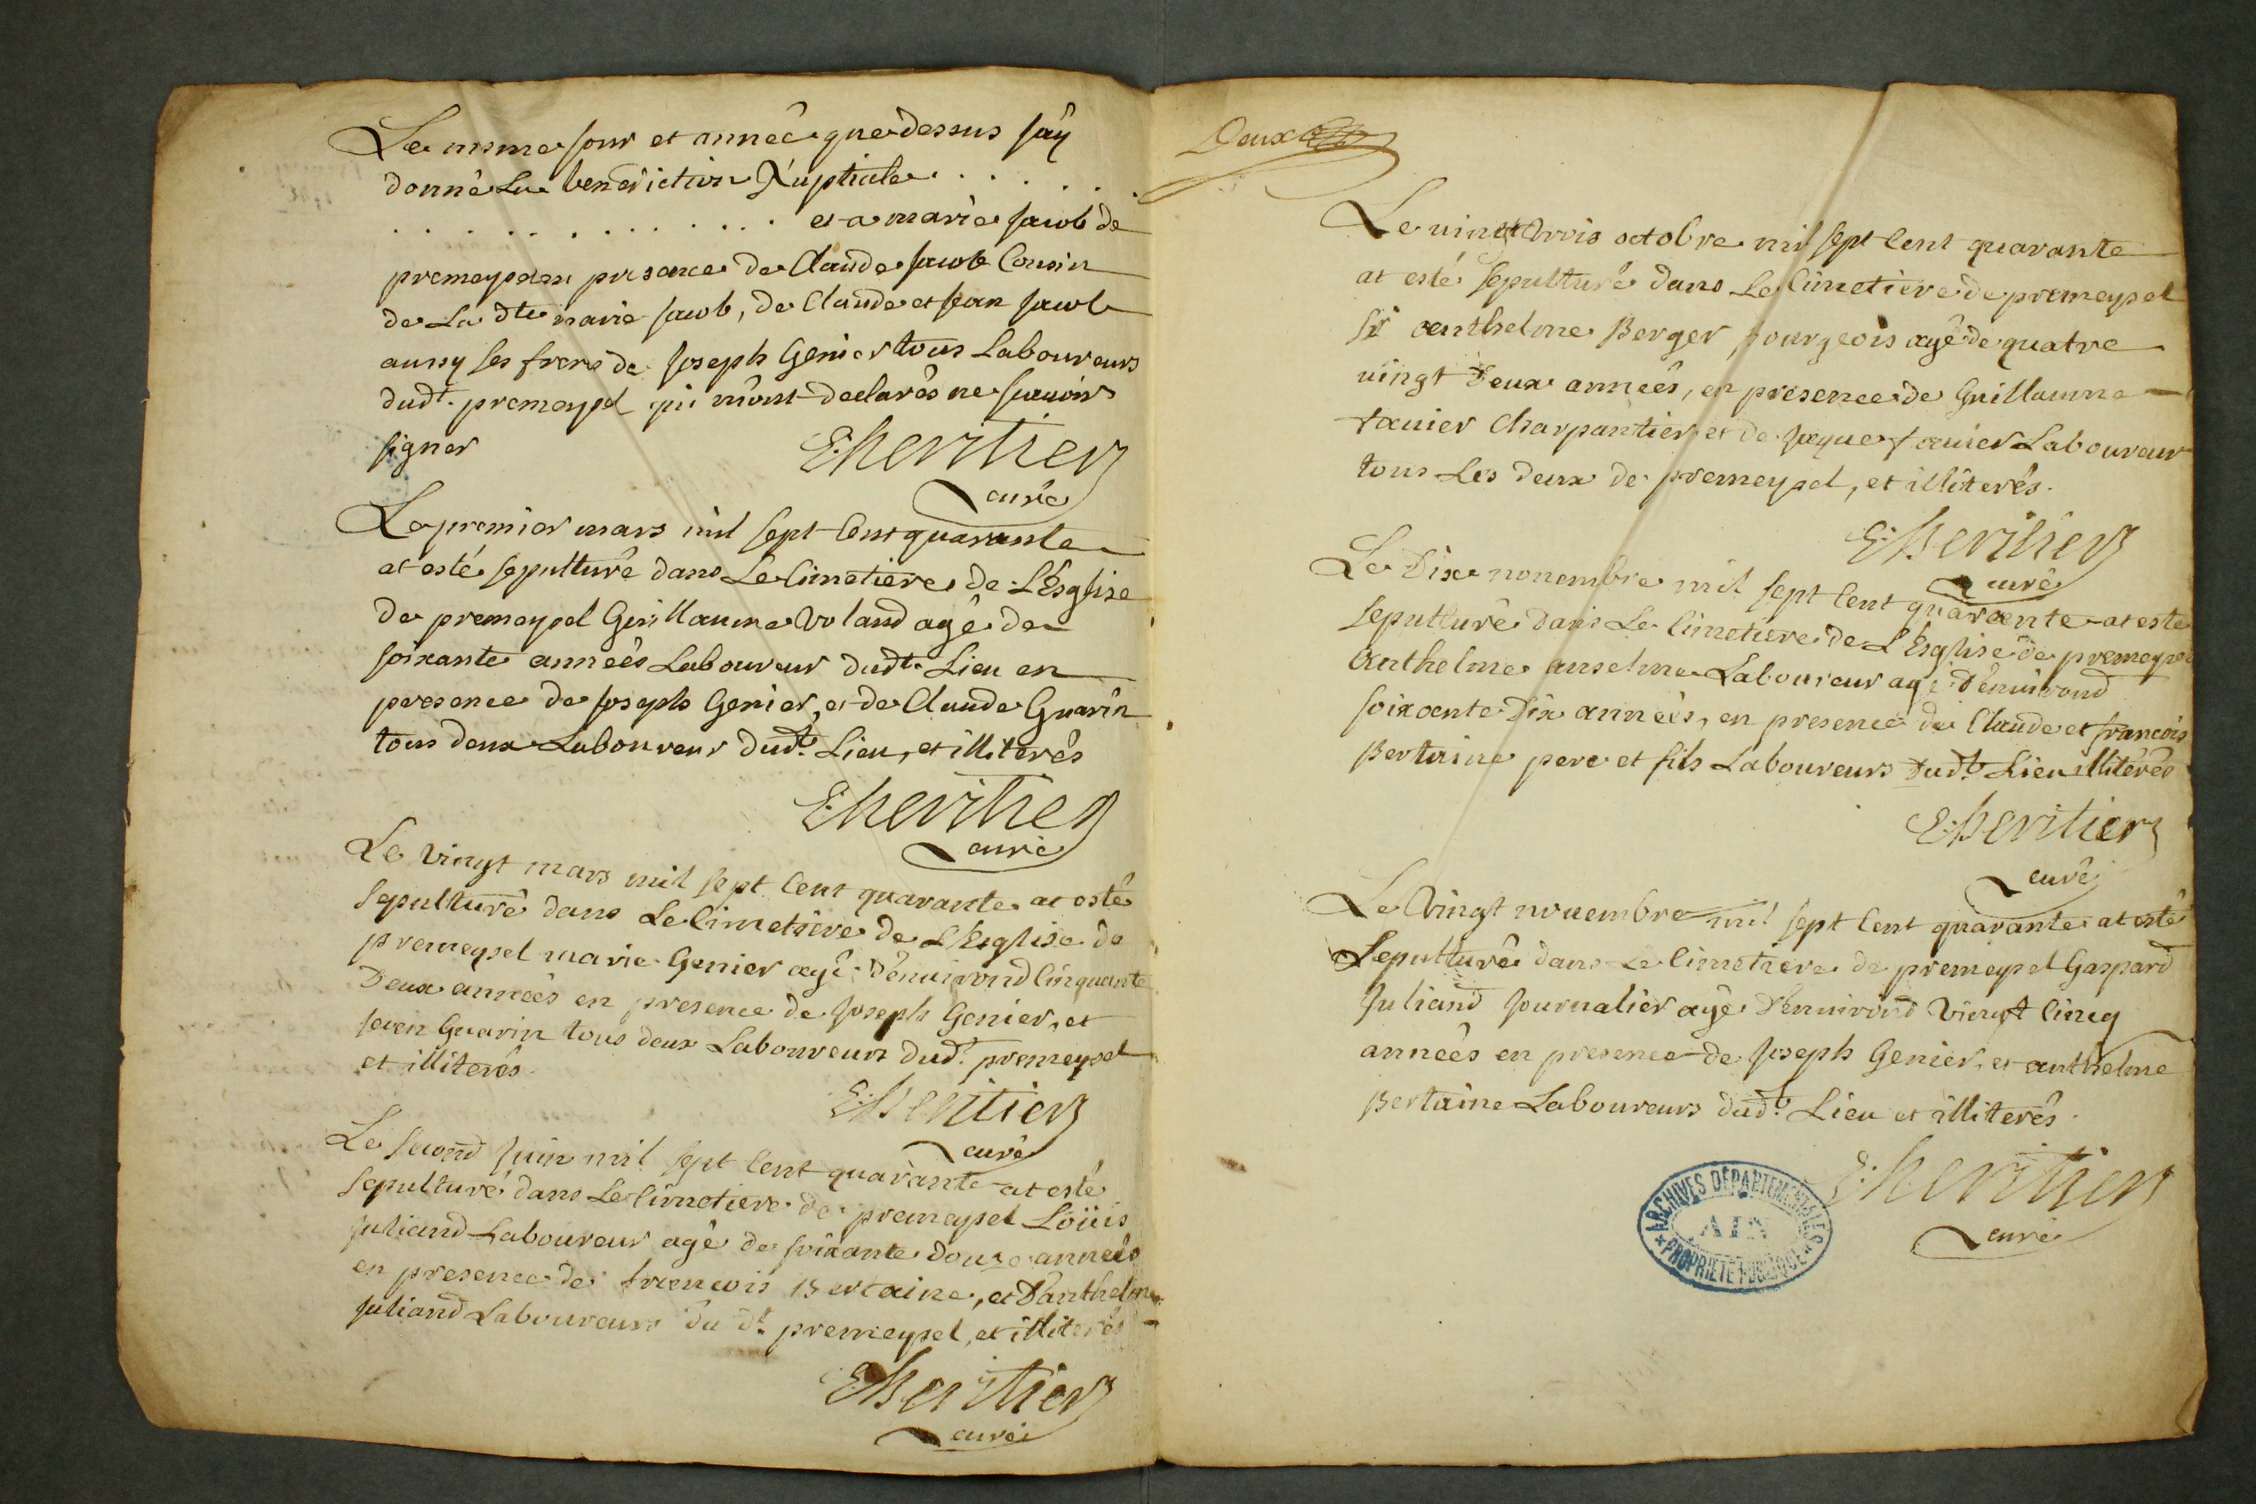 Le mesme jour et année que dessus j'ay
donné La benediction Nuptiale . . . . . .
. . . . . . . . . . . . . et a marie Jacob de
premeysel en presance de Claude Jacob Cousin
de La dte marie Jacob, de Claude et jean Jacob
aussy ses freres de Joseph Genier tous Laboureurs
dudt. premeysel qui m'ont declarés ne scavoir
signer
E: heritier
curé
Le premier mars mil sept Cent quarante
at esté sepulturé dans Le Cimetiere de L'Esglise
de premeysel Guillaume Voland agé de
soixante années Laboureur dudt. Lieu en
presence de Joseph Genier, et de Claude Guarin
tous deux Laboureur dudt. Lieu, et illiterés
E: heritier
curé
Le Vingt mars mil sept Cent quarante at esté
sepulturé dans Le Cimetiere de L'Esglise de
premeysel marie Genier agé d'enuirond Cinquante
Deux années en presence de Joseph Genier, et
jean Guarin tous deux Laboureurs dudt. premeysel
et illiterés.
E: heritier
curé
Le second Juin mil sept Cent quarante at esté
sepulturé dans Le Cimetiere de premeysel Loüis
Juliand Laboureur agé de soixante douze années
en presence de francois Bertaine, et D'anthelme
Juliand Laboureurs du dt. premeysel, et illiterés
E: heritier
curé
Deux
Le uingt trois octobre mil sept Cent quarante
at esté sepulturé dans Le Cimetiere de premeysel
Sr anthelme Berger, bourgeois agé de quatre
uingt Deux années, en presence de Guillaume
tauier Charpantier et de jaque tauier Laboureur
tous Les deux de premeysel, et illiterés.
E: heritier
curé
Le Dixe nouembre mil sept Cent quarante at esté
sepulturé dans Le Cimetiere de L'Esglise de premeysel
Anthelme anselme Laboureur agé D'enuirond
soixante Dix années, en presence de Claude et francois
Bertaine pere et fils Laboureurs Dudt. Lieu illiterés
E: heritier
curé
Le Vingt nouembre mil sept Cent quarante at esté
Sepulturé dans Le Cimetiere de premeysel Gaspard
Juliand Journalier agé D'enuirond Vingt Cincq
années en presence de Joseph Genier, et anthelme
Bertaine Laboureurs dudt. Lieu et illiterés.
E: heritier
curé
ARCHIVES DÉPARTEMENTALES
AIN
PROPRIÉTÉ PUBLIQUE